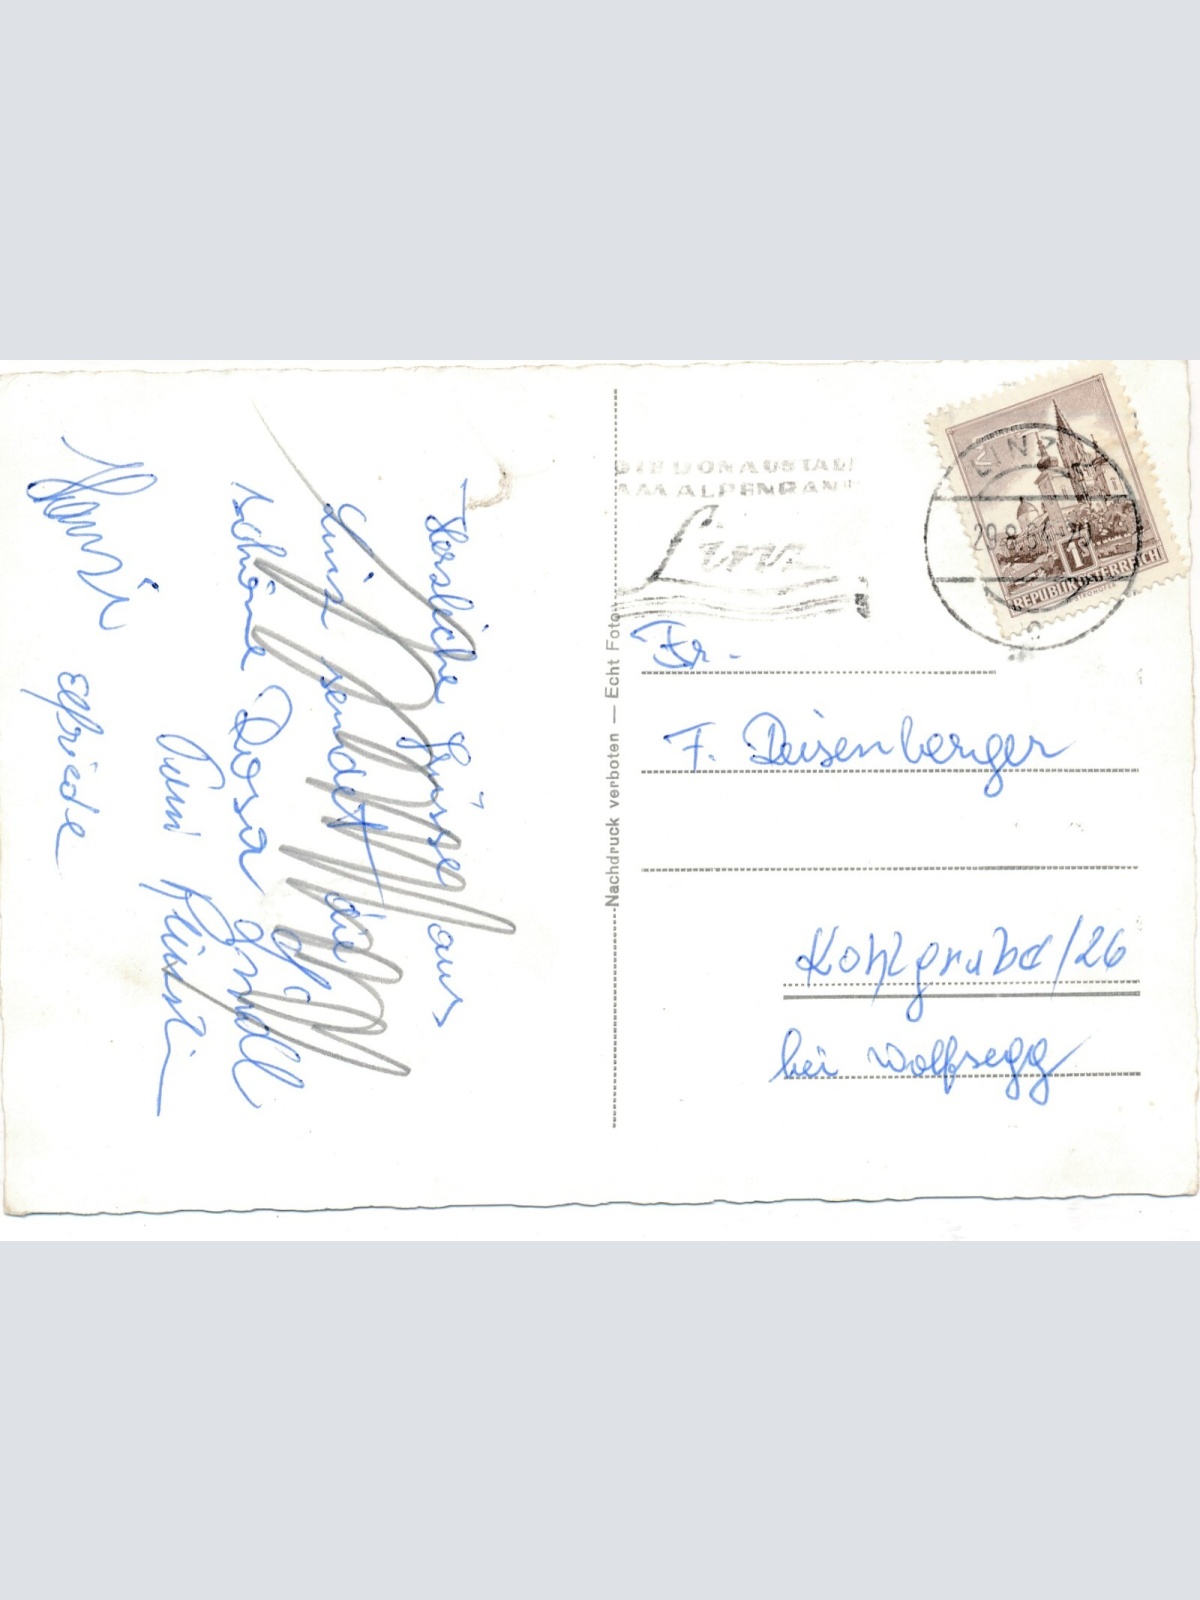 Herzliche Grüsse aus
Linz sendet die
schöne Rosa Gindl
Elfriede
Nachdruck verboten — Echt Foto
DIE DONAUSTADT
AM ALPENRAND
Linz
LINZ
29.8.
1 S
REPUBLIK ÖSTERREICH
Fr.
F. Deisenberger
Kohlgrube/26
bei Wolfsegg